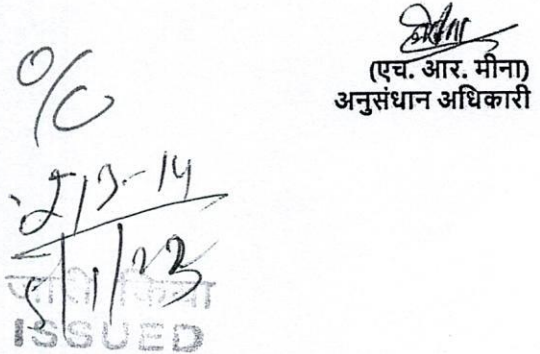 (एच. आर. मीना)
अनुसंधान अधिकारी
O/C
213-14
5/1/23
जारी किया
ISSUED